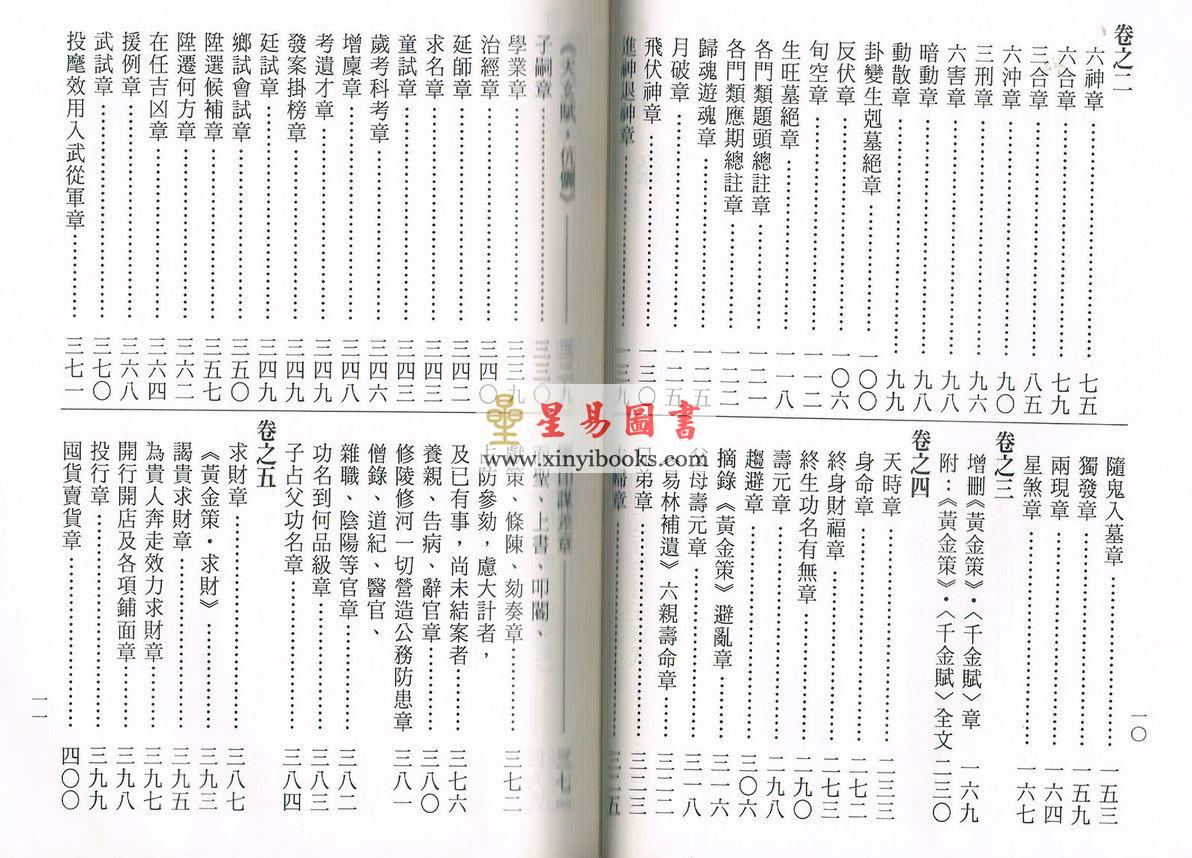 卷之二
六神章……七五
六合章……七九
三合章……八五
六沖章……九〇
三刑章……九六
六害章……九八
暗動章……九八
動散章……九九
卦變生剋墓絕章……一〇〇
反伏章……一〇六
旬空章……一一二
生旺墓絕章……一一八
各門類題頭總註章……一二一
各門類應期總註章……一二二
歸魂遊魂章……一二五
月破章……一二五
飛伏神章……一三〇
進神退神章……一三九
隨鬼入墓章……一五三
獨發章……一五九
兩現章……一六四
星煞章……一六七
卷之三
增刪《黃金策》·〈千金賦〉章 一六九
附：《黃金策》·〈千金賦〉全文 二三〇
卷之四
天時章……二三三
身命章……二七二
終身財福章……二七三
終生功名有無章……二九〇
壽元章……二九八
趨避章……三〇六
摘錄《黃金策》避亂章……三一六
父母壽元章……三一八
易林補遺》六親壽命章……三二二
兄弟章……三二三
章……三二五
一〇
《天玄賦·伉儷》
子嗣章……三三〇
學業章……三三九
治經章……三四〇
延師章……三四二
求名章……三四三
童試章……三四四
歲考科考章……三四六
增廩章……三四八
考遺才章……三四九
發案掛榜章……三四九
廷試章……三四九
鄉試會試章……三五〇
陞選候補章……三五七
陞遷何方章……三六二
在任吉凶章……三六四
援例章……三六八
武試章……三七〇
投麾效用入武從軍章……三七一
上書、叩閽、
策、條陳、劾奏章……三七二
防參劾，慮大計者，
及已有事，尚未結案者……三七六
養親、告病、辭官章……三八〇
修陵修河一切營造公務防患章 三八一
僧錄、道紀、醫官、
雜職、陰陽等官章……三八二
功名到何品級章……三八三
子占父功名章……三八四
卷之五
求財章……三八七
《黃金策·求財》……三九三
謁貴求財章……三九五
為貴人奔走效力求財章……三九七
開行開店及各項鋪面章……三九八
投行章……三九九
囤貨賣貨章……四〇〇
一一
星易圖書
www.xinyibooks.com